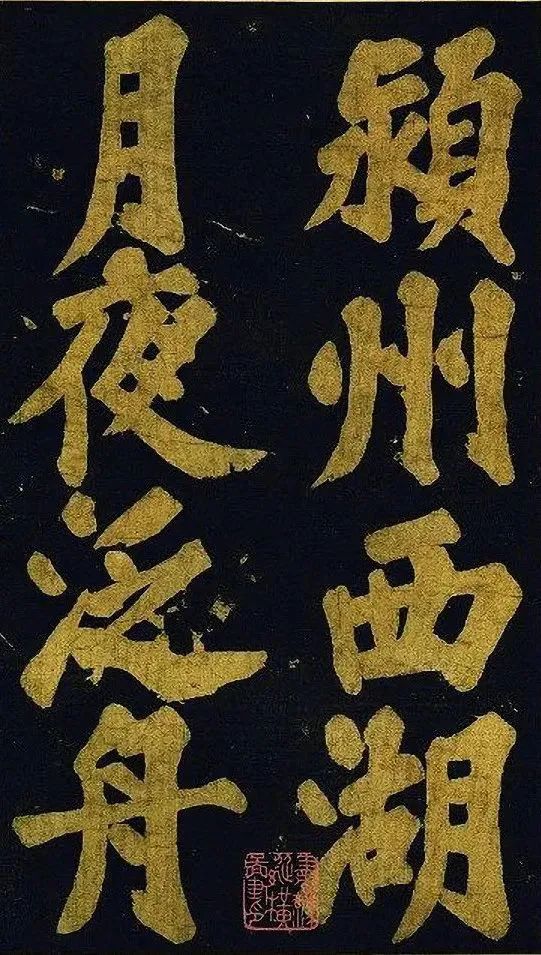 潁州西湖
月夜泛舟